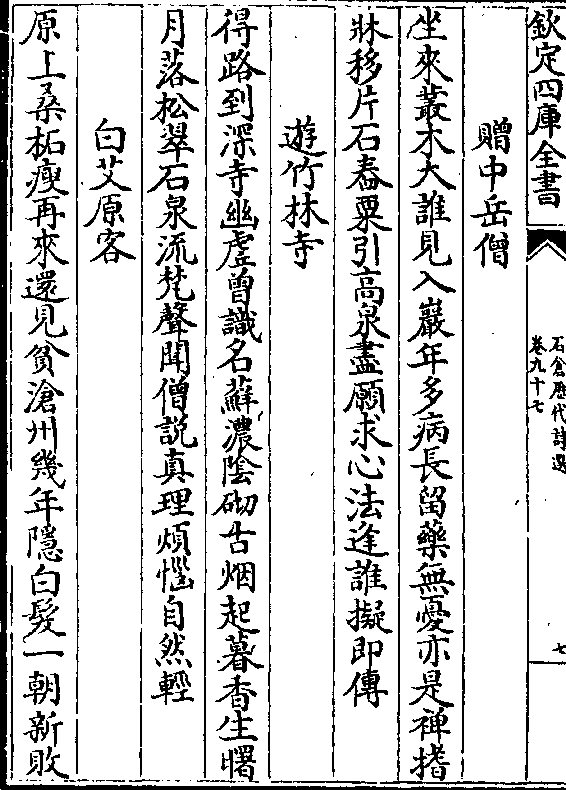 欽定四庫全書
石倉歷代詩選
卷九十七
七
贈中岳僧
坐來叢木大誰見入巖年多病長留藥無憂亦是禪揩
牀移片石舂粟引高泉盡願求心法逢誰擬即傳
遊竹林寺
得路到深寺幽虚曾識名蘚濃陰砌古烟起暮香生曙
月落松翠石泉流梵聲聞僧説真理煩惱自然輕
白艾原客
原上桑柘瘦再來還見貧滄州幾年隱白髮一朝新敗